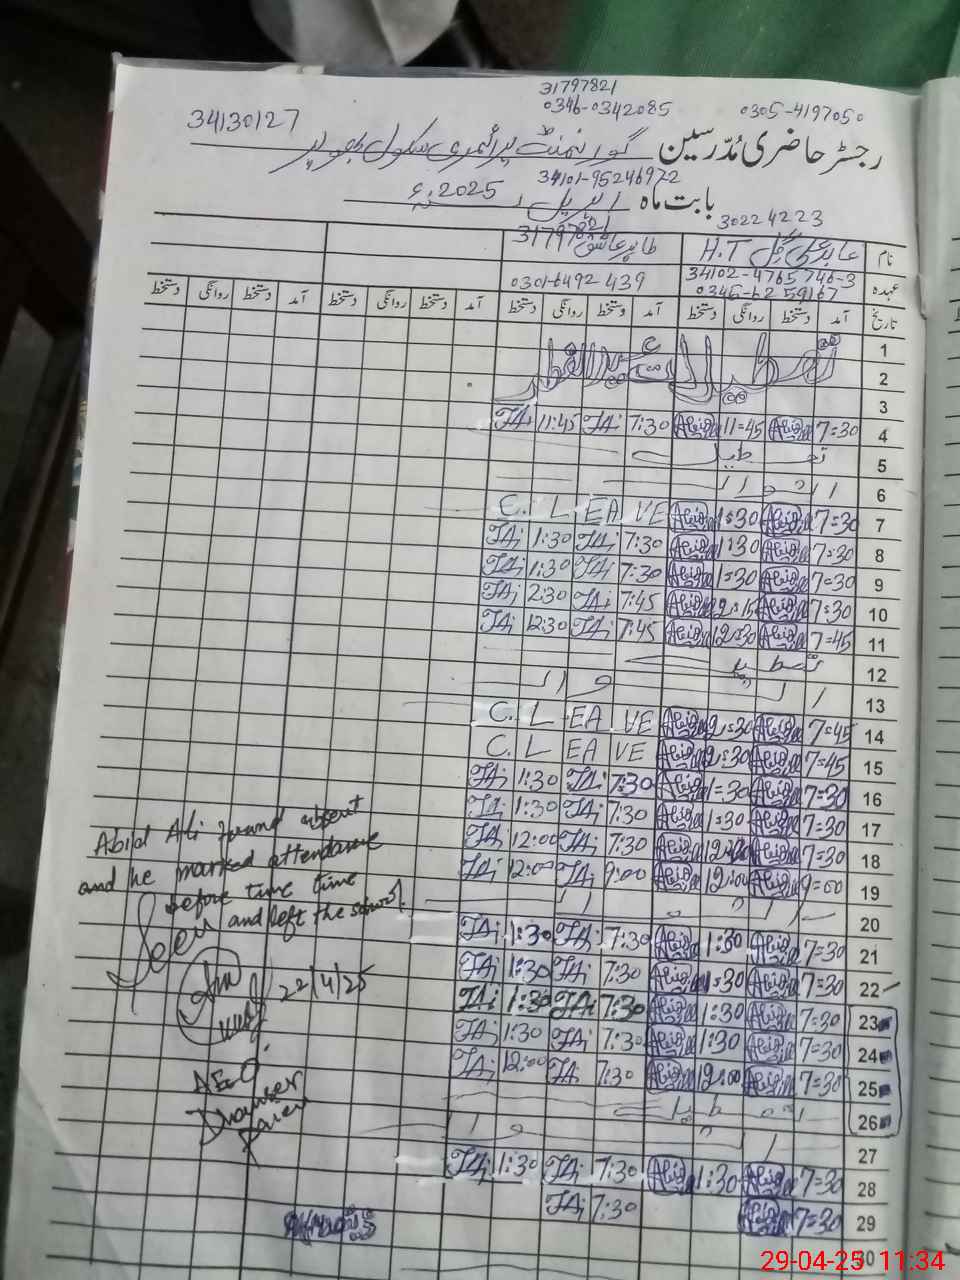 31797821
0346-0342085 0305-4197050
34130127
رجسٹر حاضری مُدرسین گورنمنٹ پرائمری سکول
34101-95246972
بابت ماہ اپریل 2025ء
30224223
31797821
نام عابد علی گِل H.T طاہر عاشق
عہدہ 34102-4765746-3 0301-6492439
0346-6259167
تاریخ آمد دستخط روانگی دستخط آمد دستخط روانگی دستخط آمد دستخط روانگی دستخط آمد دستخط روانگی دستخط
1
2
3
4 7=30 Abid 11=45 Abid 7:30 TAi 11:45 TAi
5 تعطیل
6 اتوار
7 7=30 Abid 1=30 Abid C. LEAVE
8 7=30 Abid 1:30 Abid 7:30 TAi 1:30 TAi
9 7=30 Abid 1=30 Abid 7:30 TAi 1:30 TAi
10 7=30 Abid 12=15 Abid 7:45 TAi 2:30 TAi
11 7=45 Abid 12=30 Abid 7:45 TAi 12:30 TAi
12 تعطیل
13 اتوار
14 7=45 Abid 12=30 Abid C. LEAVE
15 7=45 Abid 12=30 Abid C. LEAVE
16 7=30 Abid 1=30 Abid 7:30 TAi 1:30 TAi
17 7=30 Abid 1=30 Abid 7:30 TAi 1:30 TAi
18 7=30 Abid Abid 7:30 TAi 12:00 TAi
19 9=00 Abid 12:00 Abid 9:00 TAi 12:00 TAi
20
21 7=30 Abid 1:30 Abid 7:30 TAi 1:30 TAi
22 7=30 Abid 1=30 Abid 7:30 TAi 1:30 TAi
23 7=30 Abid 1:30 Abid 7:30 TAi 1:30 TAi
24 7=30 Abid 1:30 Abid 7:30 TAi 1:30 TAi
25 7=30 Abid 12:00 Abid 7:30 TAi 12:00 TAi
26
27
28 7=30 Abid 1:30 Abid 7:30 TAi 1:30 TAi
29 7=30 Abid 7:30 TAi
30
Abid Ali found absent
and he marked attendance
before time time
and left the school.
Seen
22/4/25
AEO
29-04-25 11:34